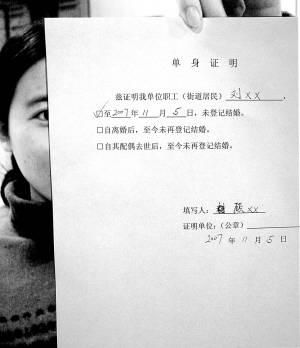 单身证明
兹证明我单位职工（街道居民）刘××，
☑至2007年11月5日，未登记结婚。
□自离婚后，至今未再登记结婚。
□自其配偶去世后，至今未再登记结婚。
填写人：××
证明单位：（公章）
2007年11月5日